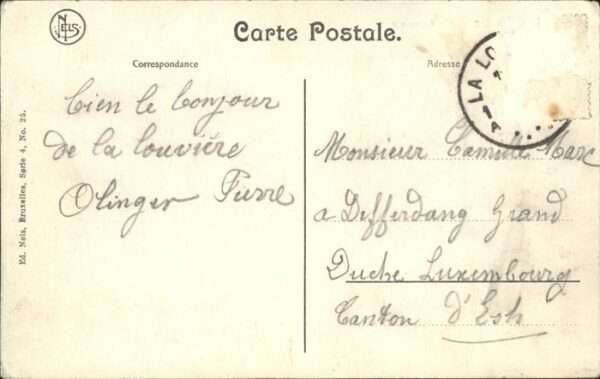 NELS
Carte Postale.
Correspondance
Adresse
LA LO
bien le bonjour
de la louviére
Olinger Pierre
Monsieur Camille Marx
a Differdang Grand
Duche Luxembourg
Canton d'Esh
Ed. Nels, Bruxelles, Serie 4, No. 25.